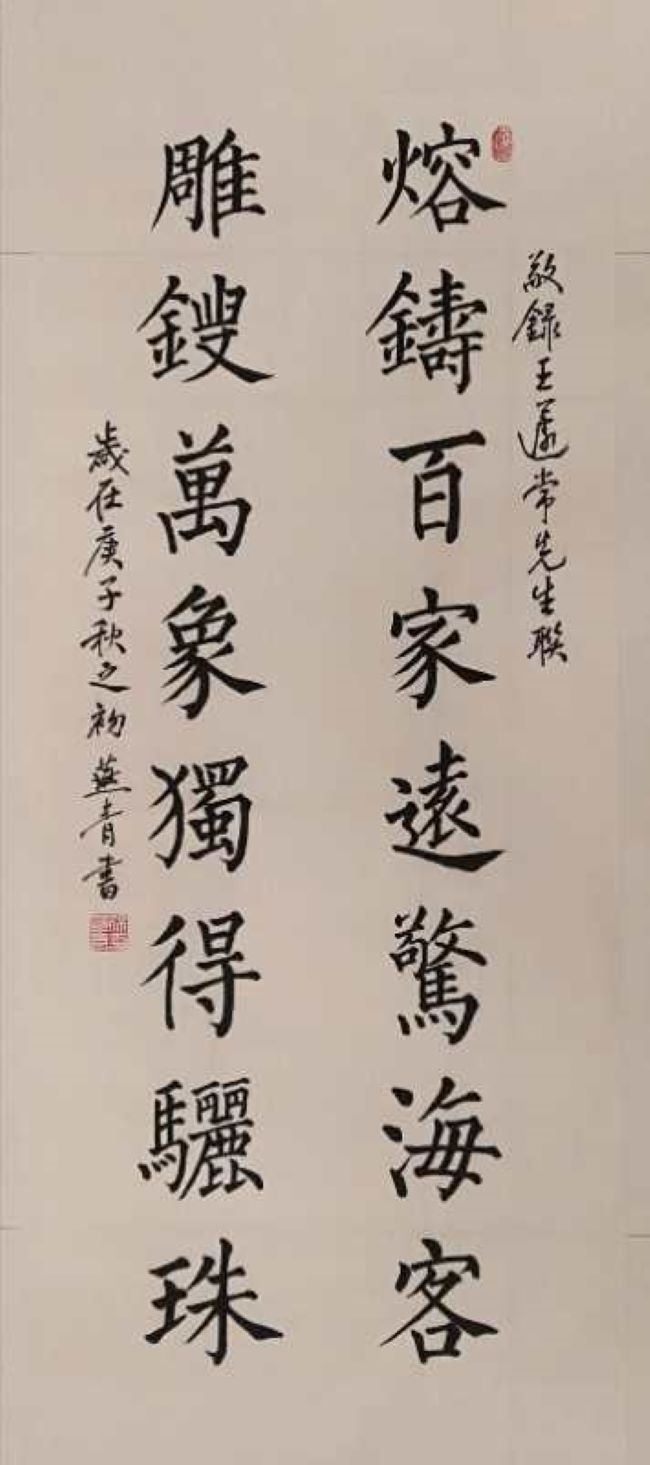 敬錄王蘧常先生聯
熔鑄百家遠驚海客
雕鎪萬象獨得驪珠
歲在庚子秋之初燕青書